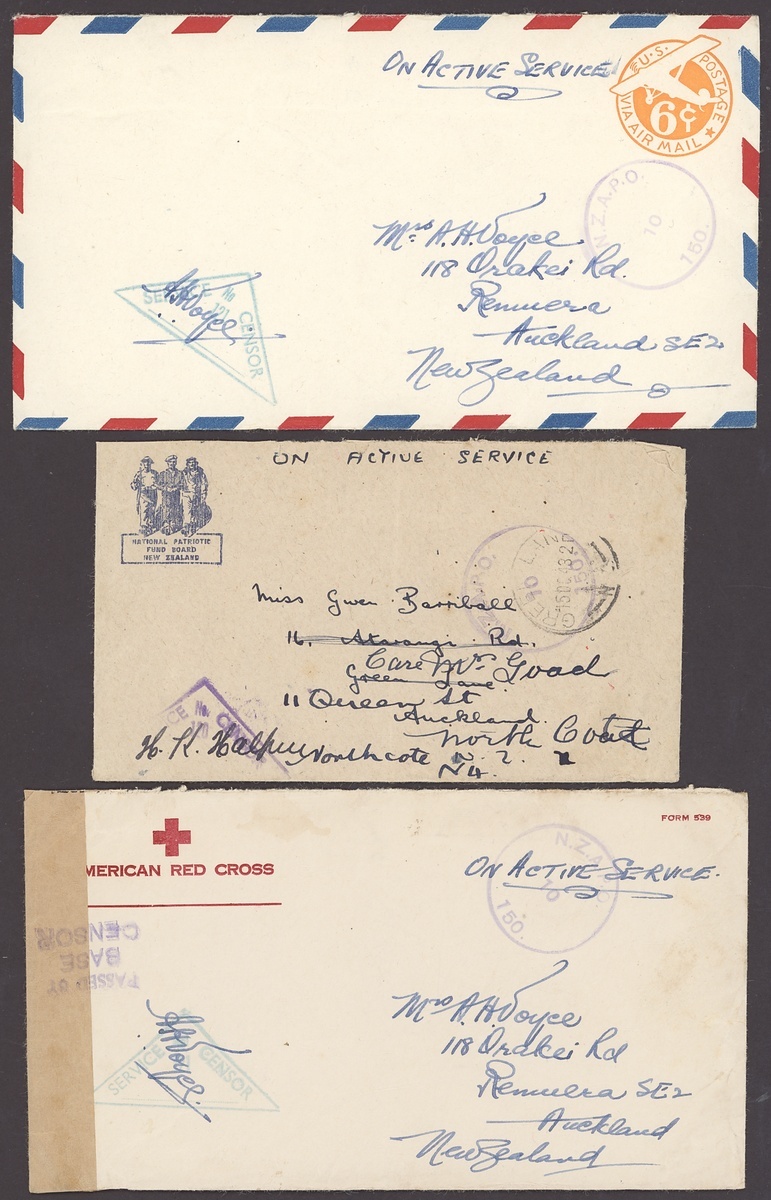 ON ACTIVE SERVICE
U.S. POSTAGE
6¢
VIA AIR MAIL
N.Z.A.P.O.
10
150.
Mrs A.H. Voyce
118 Orakei Rd.
Remuera
Auckland SE2
New Zealand
SERVICE No CENSOR
A H Voyce
ON ACTIVE SERVICE
NATIONAL PATRIOTIC
FUND BOARD
NEW ZEALAND
N.Z.A.P.O.
10
150
GREEN LANE
15 DE 43
Miss Gwen Barriball
16. Atarangi Rd.
Care Mrs Goad
Green Lane
11 Queen St
Auckland.
North Coted
Northcote N.Z.
N4.
CE No CENSOR
H. K.
AMERICAN RED CROSS
FORM 539
ON ACTIVE SERVICE.
N.Z.A.P.O.
10
150.
PASSED BY
BASE
CENSOR
Mrs A.H. Voyce
118 Orakei Rd
Remuera SE2
Auckland
New Zealand
SERVICE CENSOR
A H Voyce